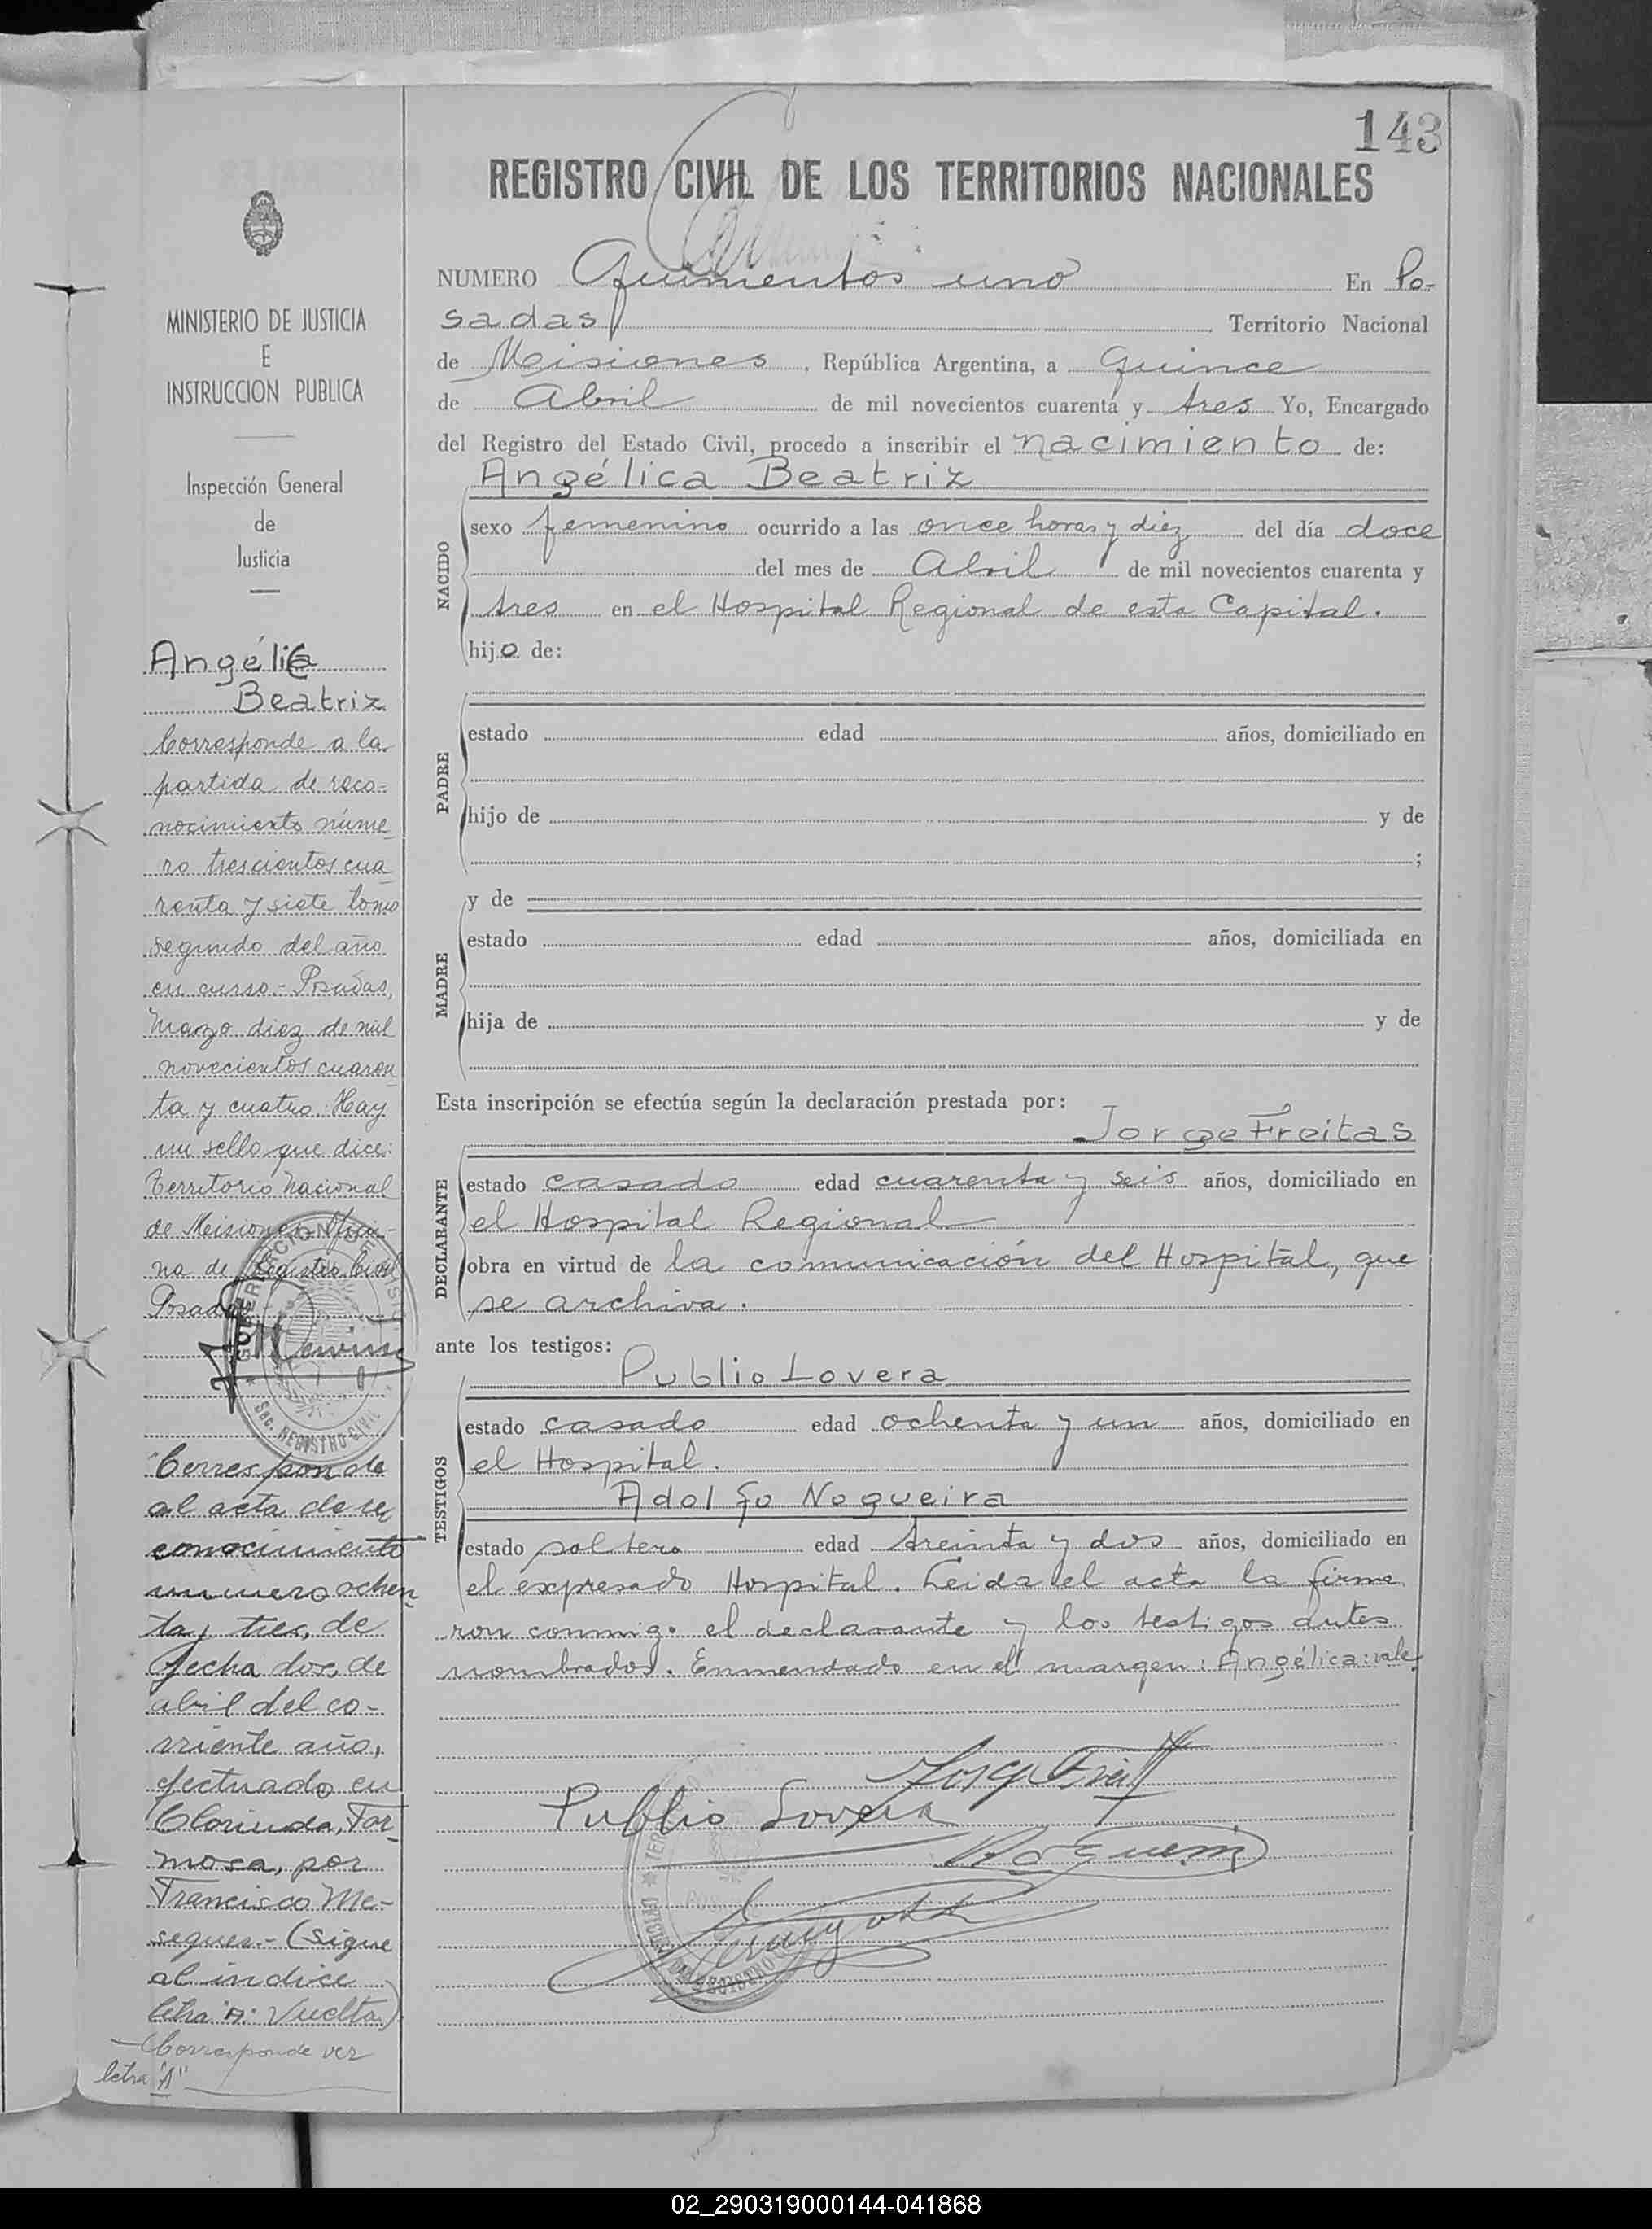 143
REGISTRO CIVIL DE LOS TERRITORIOS NACIONALES
MINISTERIO DE JUSTICIA
E
INSTRUCCION PUBLICA
Inspección General
de
Justicia
Angélica
Beatriz
Corresponde a la
partida de reco-
nocimiento núme
ro trescientos cua
renta y siete tomo
segundo del año
en curso.- Posadas,
Marzo diez de mil
novecientos cuaren
ta y cuatro. Hay
un sello que dice:
Territorio Nacional
de Misiones Ofici-
na de Registro Civil
Posadas
Corresponde
al acta de re
conocimiento
numero ochen
ta y tres, de
fecha dos, de
abril del co-
rriente año,
efectuado en
Clorinda, For
mosa, por
Francisco Me-
seques.- (Sigue
al indice
letra "A" Vuelta)
- Corresponde ver
letra "A"
NUMERO Quinientos uno En Po-
sadas Territorio Nacional
de Misiones, República Argentina, a quince
de Abril de mil novecientos cuarenta y tres Yo, Encargado
del Registro del Estado Civil, procedo a inscribir el nacimiento de:
Angélica Beatriz
NACIDO
sexo femenino ocurrido a las once horas y diez del día doce
del mes de Abril de mil novecientos cuarenta y
tres en el Hospital Regional de esta Capital.
hijo de:
PADRE
estado edad años, domiciliado en
hijo de y de
;
MADRE
y de
estado edad años, domiciliada en
hija de y de
Esta inscripción se efectúa según la declaración prestada por:
Jorge Freitas
DECLARANTE
estado casado edad cuarenta y seis años, domiciliado en
el Hospital Regional
obra en virtud de la comunicación del Hospital, que
se archiva.
ante los testigos:
Publio Lovera
TESTIGOS
estado casado edad ochenta y un años, domiciliado en
el Hospital.
Adolfo Nogueira
estado soltero edad treinta y dos años, domiciliado en
el expresado Hospital. Leida el acta la firma
ron conmigo el declarante y los testigos antes
nombrados. Enmendado en el margen: Angélica: vale.
Publio Lovera
02_290319000144-041868